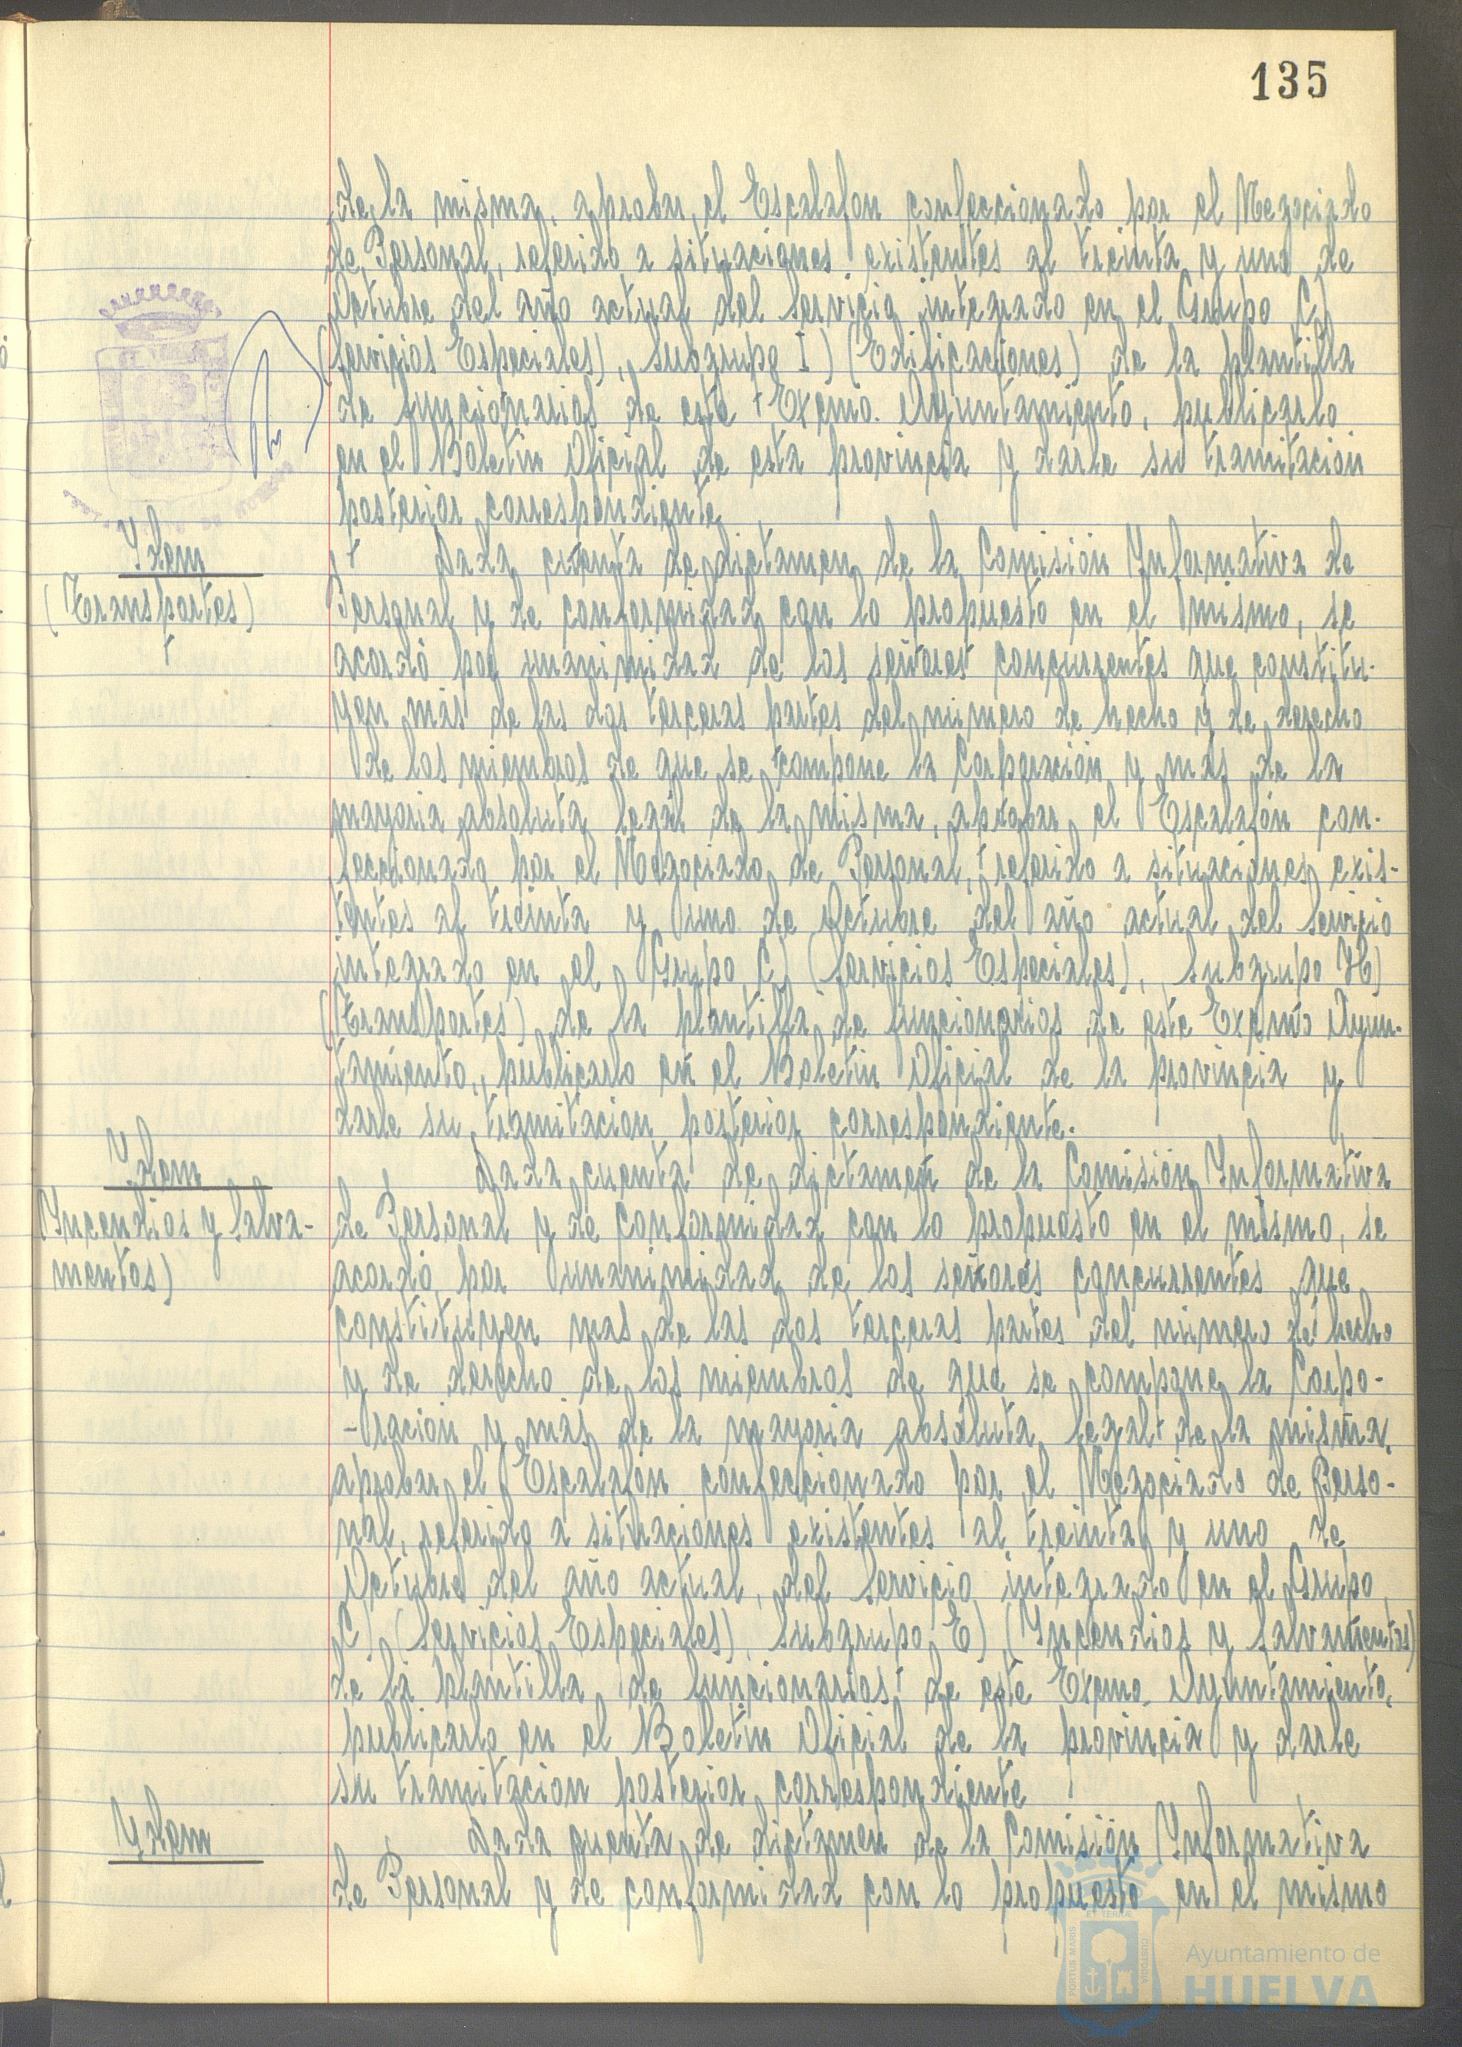 135
de la misma, aprobar el Escalafon confeccionado por el Negociado
de Personal, referido a situaciones existentes al treinta y uno de
Octubre del año actual del Servicio integrado en el Grupo C)
(Servicios Especiales), Subgrupo I) (Edificaciones) de la plantilla
de funcionarios de este Excmo. Ayuntamiento, publicarlo
en el Boletin Oficial de esta provincia y darle su tramitación
posterior correspondiente
Ydem
(Transportes)
Dada cuenta de dictamen de la Comisión Informativa de
Personal y de conformidad con lo propuesto en el mismo, se
acordó por unanimidad de los señores concurrentes que constitu-
yen más de las dos terceras partes del numero de hecho y de derecho
de los miembros de que se compone la Corporación y más de la
mayoria absoluta legal de la misma, aprobar el Escalafón con-
feccionado por el Negociado de Personal, referido a situaciones exis-
tentes al treinta y uno de Octubre del año actual del Servicio
integrado en el Grupo C) (Servicios Especiales), Subgrupo H)
(Transportes) de la plantilla de funcionarios de este Excmo Ayun-
tamiento, publicarlo en el Boletin Oficial de la provincia y
darle su tramitacion posterior correspondiente.
Ydem
Yncendios y Salva-
mentos)
Dada cuenta de dictamen de la Comisión Informativa
de Personal y de conformidad con lo propuesto en el mismo, se
acordó por unanimidad de los señores concurrentes que
constituyen mas de las dos terceras partes del numero de hecho
y de derecho de los miembros de que se compone la Corpo-
-ración y más de la mayoria absoluta legal de la misma,
aprobar el Escalafón confeccionado por el Negociado de Perso-
nal, referido a situaciones existentes al treinta y uno de
Octubre del año actual, del Servicio integrado en el Grupo
C) (Servicios Especiales), Subgrupo E) (Yncendios y Salvamentos)
de la plantilla de funcionarios de este Excmo. Ayuntamiento,
publicarlo en el Boletin Oficial de la provincia y darle
su tramitacion posterior correspondiente
Ydem
Dada cuenta de dictamen de la Comisión Informativa
de Personal y de conformidad con lo propuesto en el mismo
PORTUS MARIS
ET TERRAE
CUSTODIA
Ayuntamiento de
HUELVA